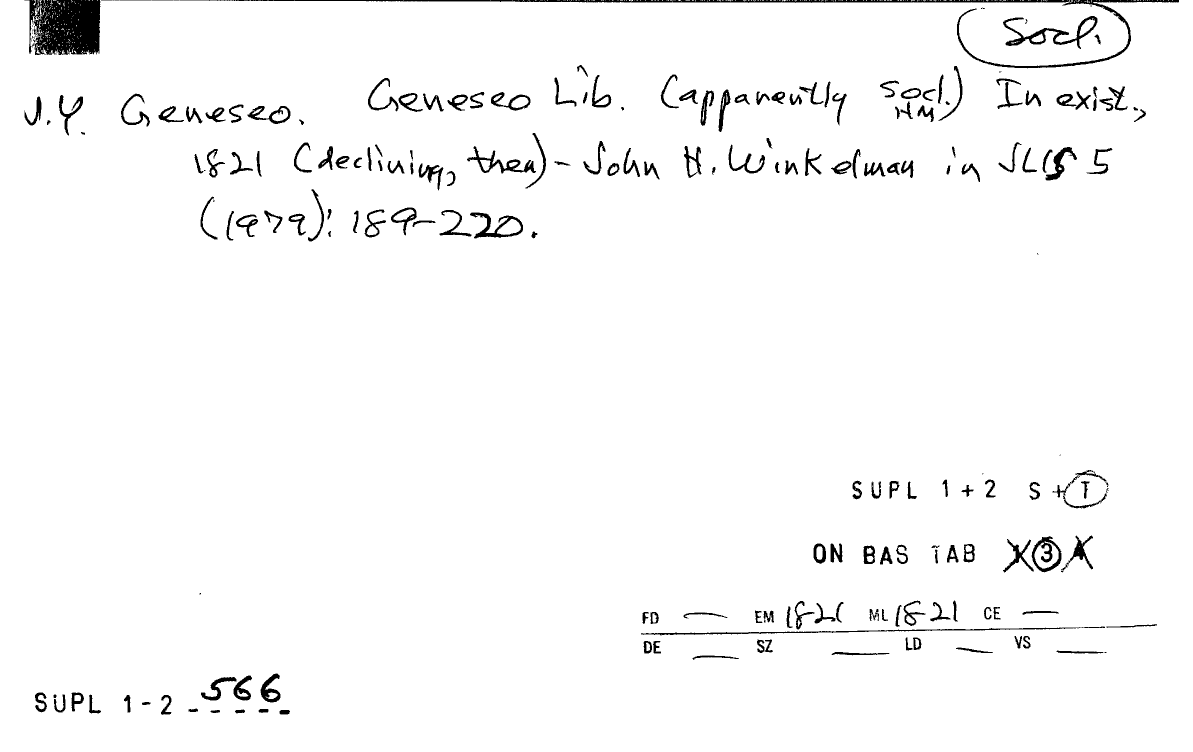 Socl.
N.Y. Geneseo. Geneseo Lib. (apparently socl.) In exist.,
HM
1821 (declining, then) - John H. Winkelman in JLS 5
(1979): 189-220.
SUPL 1+2 S+T
ON BAS TAB 3 4
FD — EM 1821 ML 1821 CE —
DE __ SZ __ LD __ VS __
SUPL 1-2 566